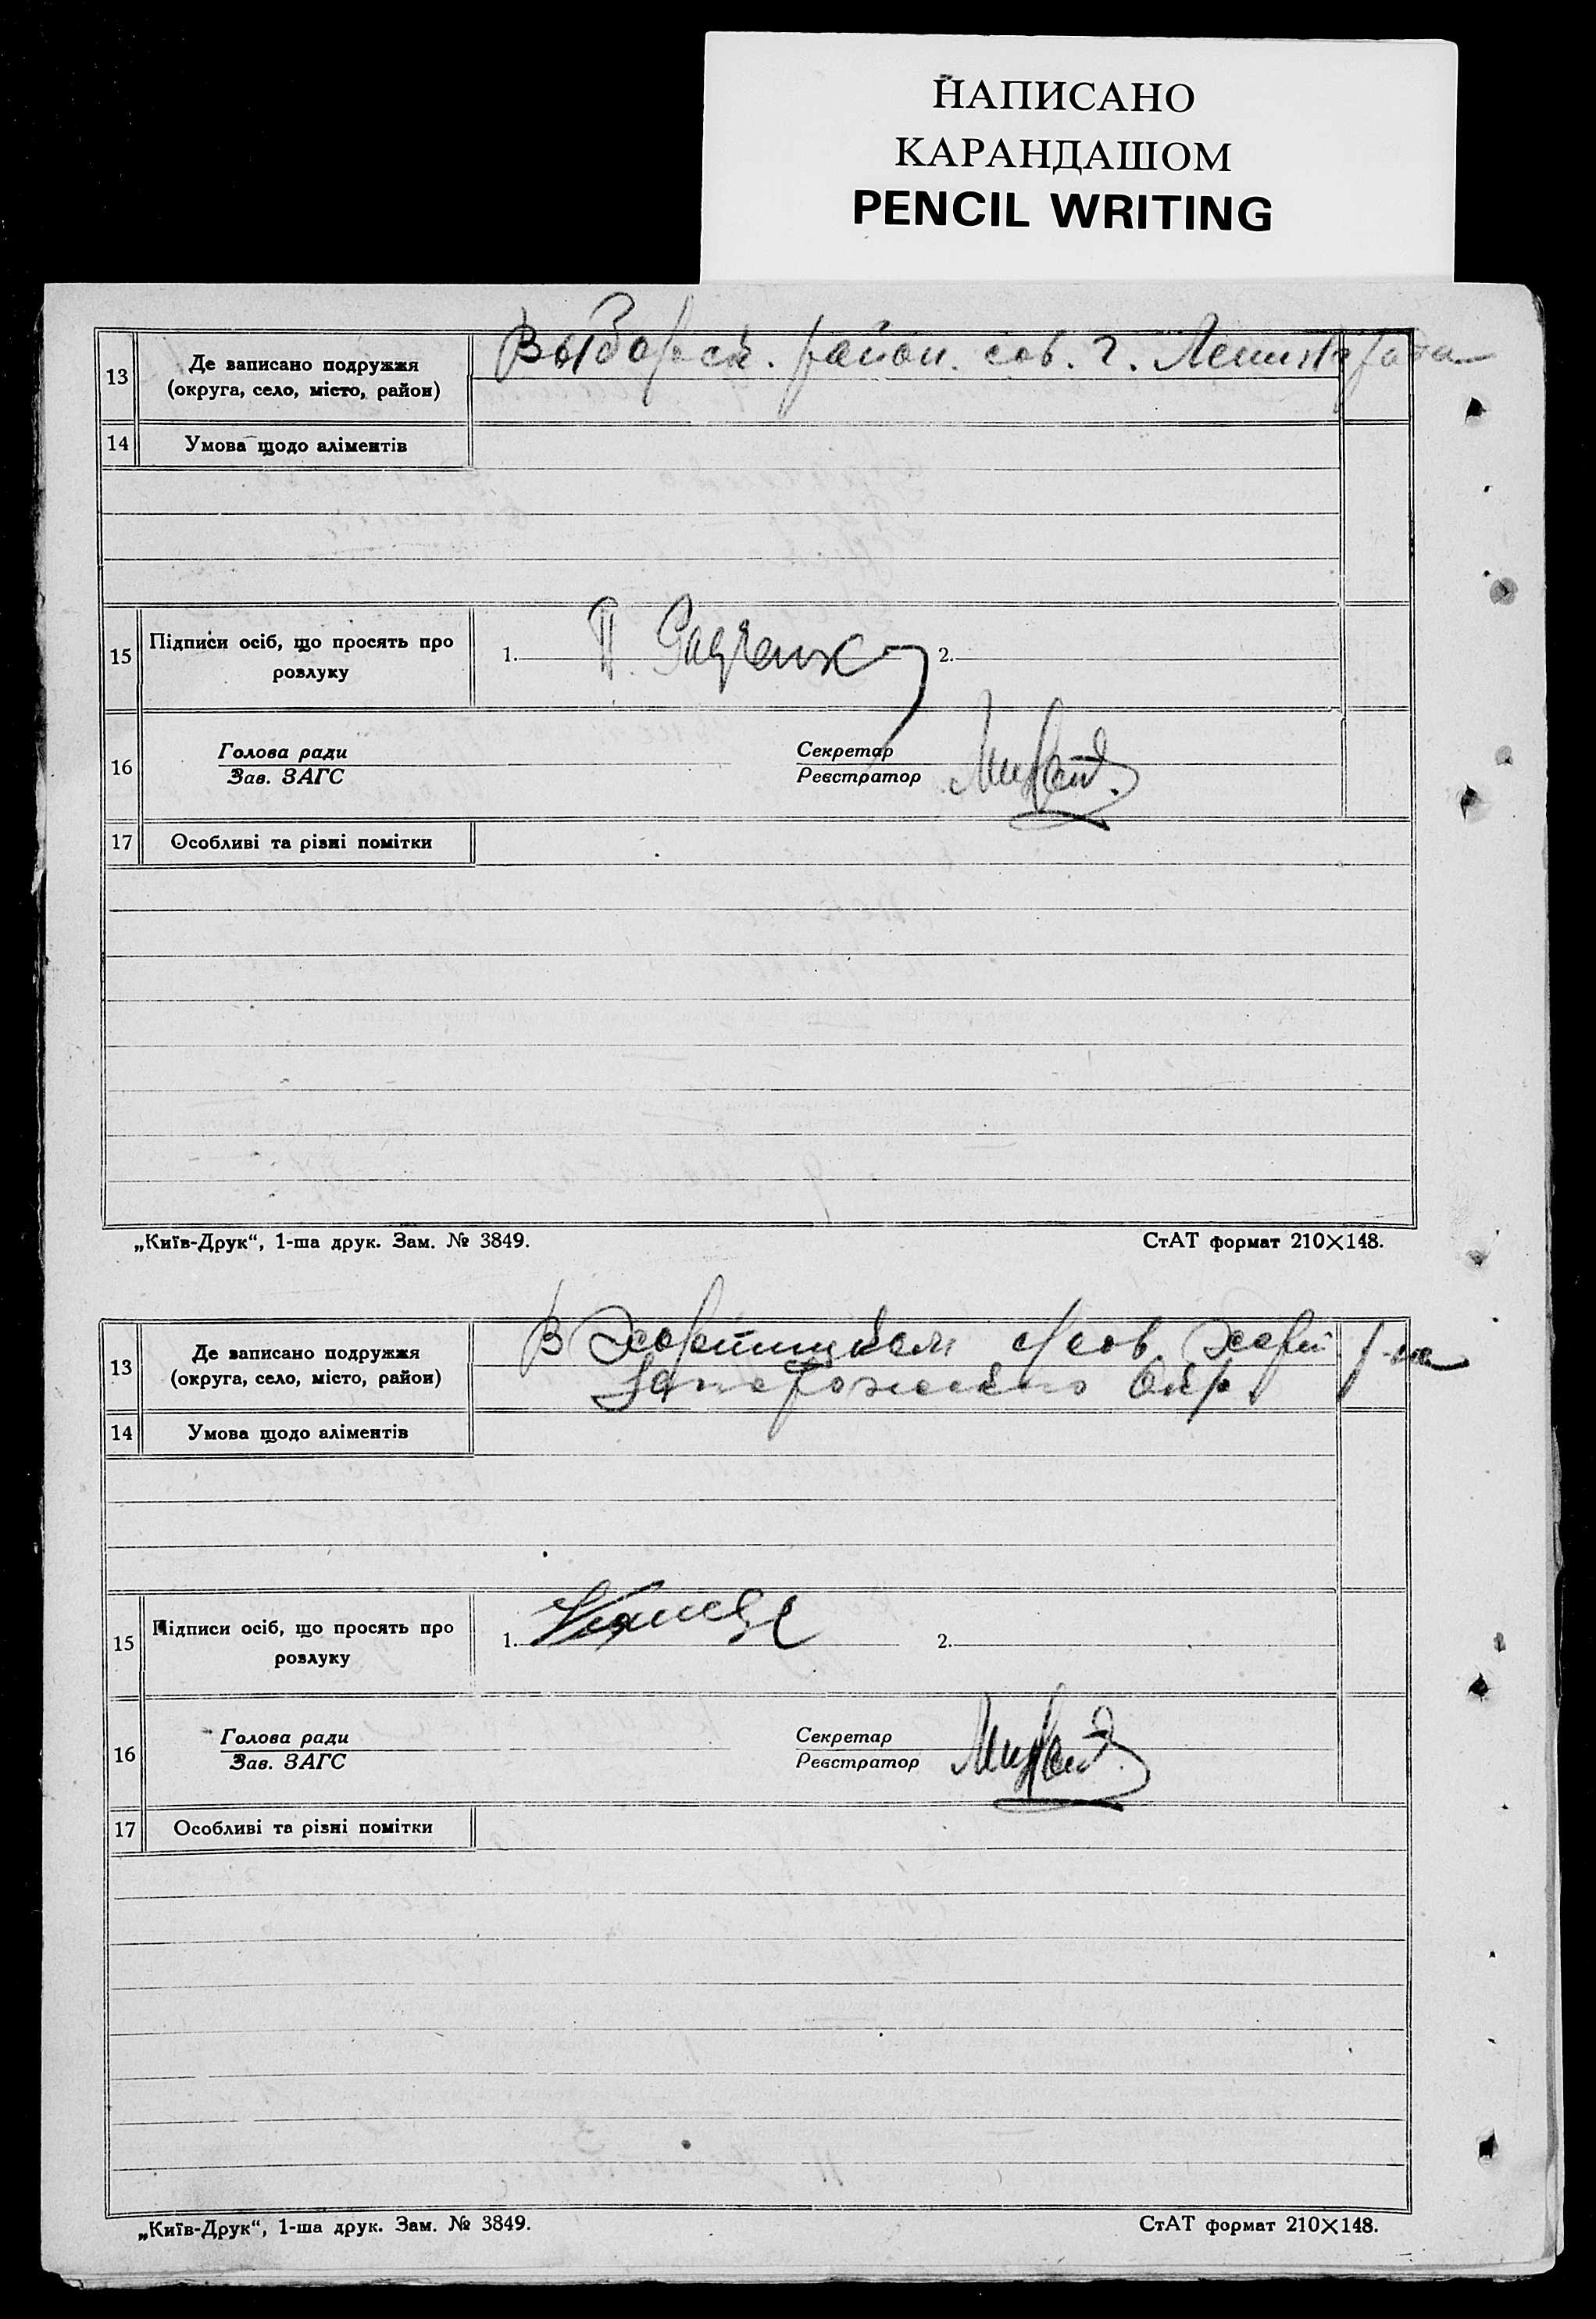 НАПИСАНО
КАРАНДАШОМ
PENCIL WRITING
13 Де записано подружжя
(округа, село, місто, район)
В Выборгск. район. сов. г. Ленинграда
14 Умова щодо аліментів
15 Підписи осіб, що просять про
розлуку
1. 2.
16 Голова ради
Зав. ЗАГС
Секретар
Реєстратор
17 Особливі та різні помітки
„Київ-Друк“, 1-ша друк. Зам. № 3849. СтАТ формат 210×148.
13 Де записано подружжя
(округа, село, місто, район)
В Хортицком с/сов Хорт р-на
Запорожского Окр
14 Умова щодо аліментів
15 Підписи осіб, що просять про
розлуку
1. 2.
16 Голова ради
Зав. ЗАГС
Секретар
Реєстратор
17 Особливі та різні помітки
„Київ-Друк“, 1-ша друк. Зам. № 3849. СтАТ формат 210×148.